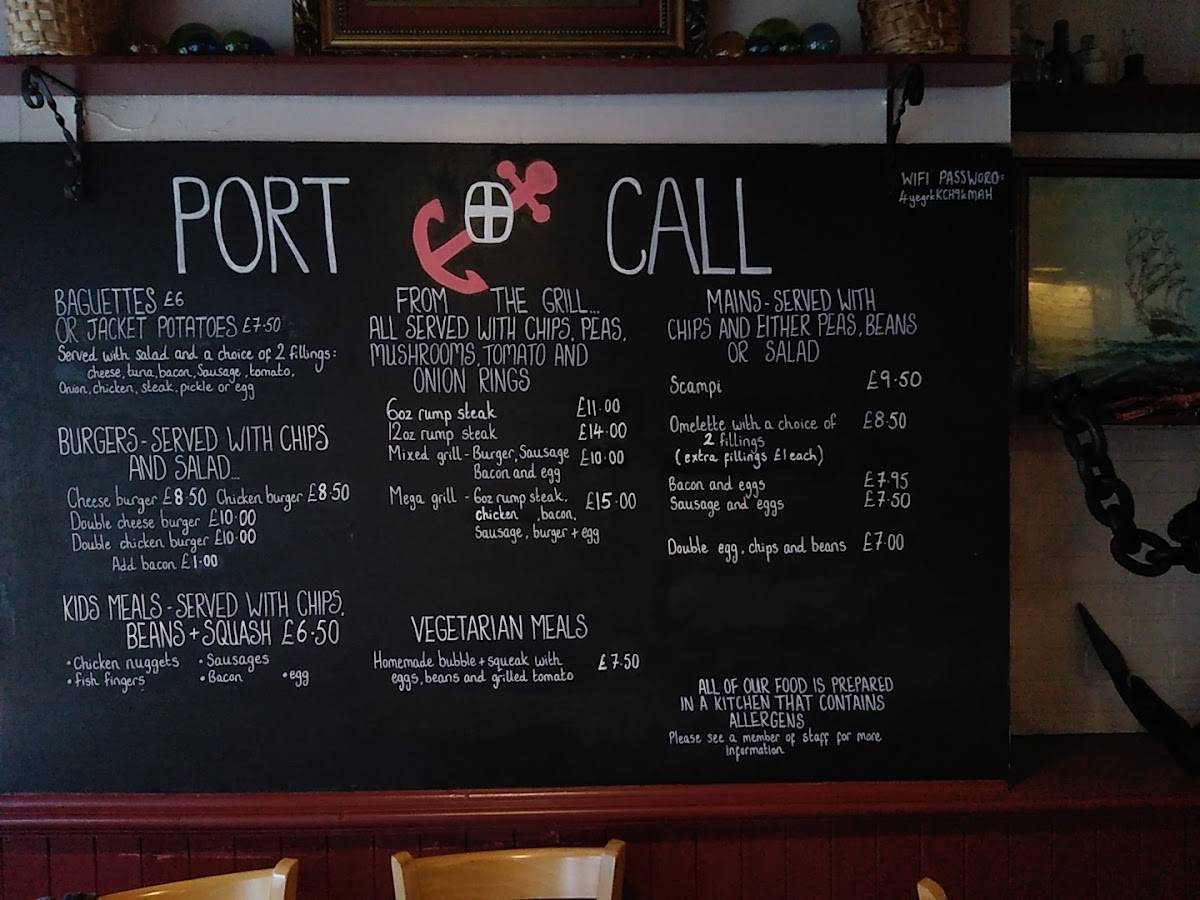 PORT CALL
WIFI PASSWORD:
BAGUETTES £6
OR JACKET POTATOES £7·50
Served with salad and a choice of 2 fillings:
cheese, tuna, bacon, Sausage, tomato,
Onion, chicken, steak, pickle or egg
BURGERS - SERVED WITH CHIPS
AND SALAD...
Cheese burger £8·50 Chicken burger £8·50
Double cheese burger £10·00
Double chicken burger £10·00
Add bacon £1·00
KIDS MEALS - SERVED WITH CHIPS,
BEANS + SQUASH £6·50
• Chicken nuggets • Sausages
• fish fingers • Bacon • egg
FROM THE GRILL...
ALL SERVED WITH CHIPS, PEAS,
MUSHROOMS, TOMATO AND
ONION RINGS
6oz rump steak £11·00
12oz rump steak £14·00
Mixed grill - Burger, Sausage £10·00
Bacon and egg
Mega grill - 6oz rump steak, £15·00
chicken, bacon,
Sausage, burger + egg
VEGETARIAN MEALS
Homemade bubble + squeak with £7·50
eggs, beans and grilled tomato
MAINS - SERVED WITH
CHIPS AND EITHER PEAS, BEANS
OR SALAD
Scampi £9·50
Omelette with a choice of £8·50
2 fillings
(extra fillings £1 each)
Bacon and eggs £7·95
Sausage and eggs £7·50
Double egg, chips and beans £7·00
ALL OF OUR FOOD IS PREPARED
IN A KITCHEN THAT CONTAINS
ALLERGENS
Please see a member of staff for more
information